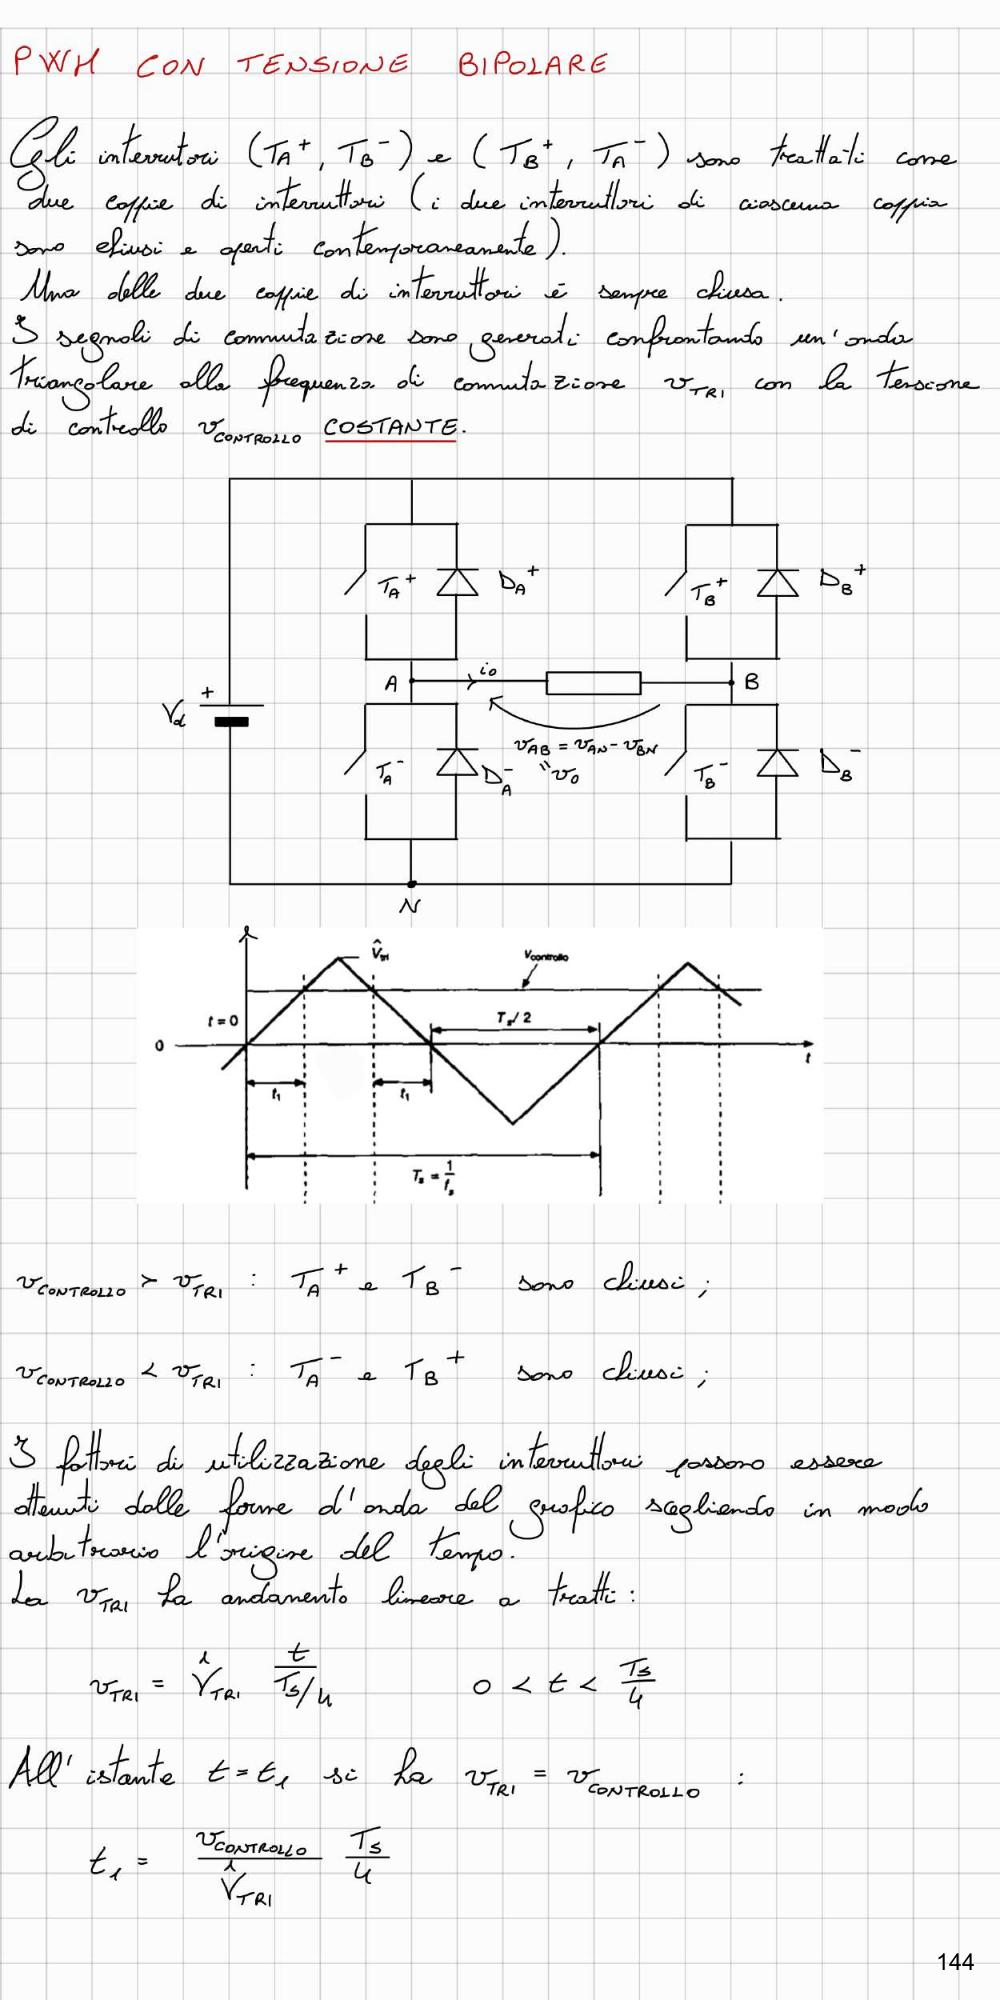 PWM CON TENSIONE BIPOLARE
Gli interruttori (TA+, TB-) e (TB+, TA-) sono trattati come
due coppie di interruttori (i due interruttori di ciascuna coppia
sono chiusi e aperti contemporaneamente).
Una delle due coppie di interruttori è sempre chiusa.
I segnali di commutazione sono generati confrontando un'onda
triangolare alla frequenza di commutazione vTRI con la tensione
di controllo vCONTROLLO COSTANTE.
TA+ DA+ TB+ DB+
A io B
+
Vd
vAB = vAN - vBN
TA- DA- "v0 TB- DB-
N
V̂tri Vcontrollo
t=0
Ts/2
0
t
t1 t1
Ts = 1/fs
vCONTROLLO > vTRI : TA+ e TB- sono chiusi;
vCONTROLLO < vTRI : TA- e TB+ sono chiusi;
I fattori di utilizzazione degli interruttori possono essere
ottenuti dalle forme d'onda del grafico scegliendo in modo
arbitrario l'origine del tempo.
La vTRI ha andamento lineare a tratti:
vTRI = V̂TRI t/(Ts/4) 0 < t < Ts/4
All'istante t=t1 si ha vTRI = vCONTROLLO :
t1 = vCONTROLLO/V̂TRI Ts/4
144